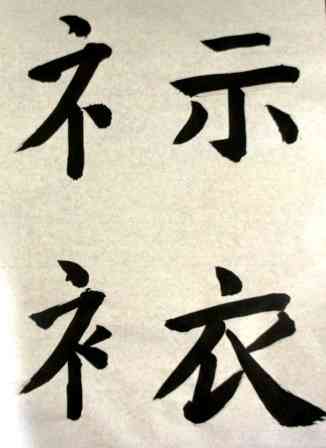 礻示
衤衣